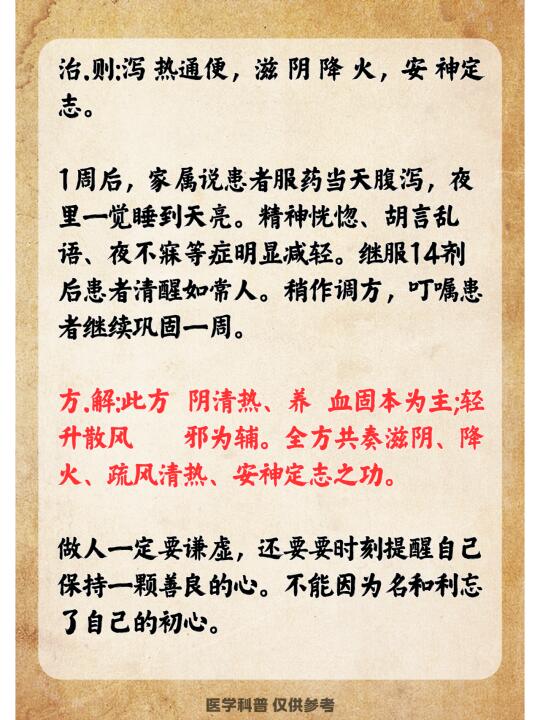 治.则:泻 热通便，滋 阴 降 火，安 神定
志。
1周后，家属说患者服药当天腹泻，夜
里一觉睡到天亮。精神恍惚、胡言乱
语、夜不寐等症明显减轻。继服14剂
后患者清醒如常人。稍作调方，叮嘱患
者继续巩固一周。
方.解:此方 阴清热、养 血固本为主;轻
升散风 邪为辅。全方共奏滋阴、降
火、疏风清热、安神定志之功。
做人一定要谦虚，还要要时刻提醒自己
保持一颗善良的心。不能因为名和利忘
了自己的初心。
医学科普 仅供参考